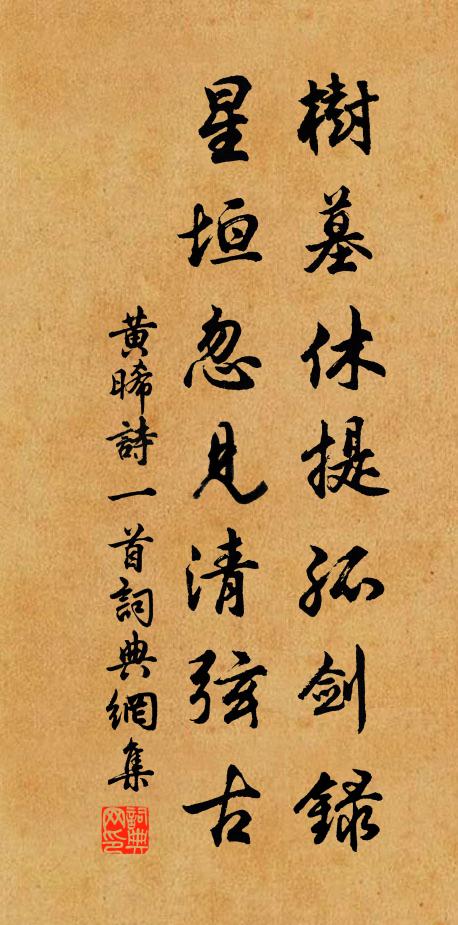 樹墓休提孤劍錄
星垣忽見清弦古
黄晞詩一首詞典網集
詞典网印